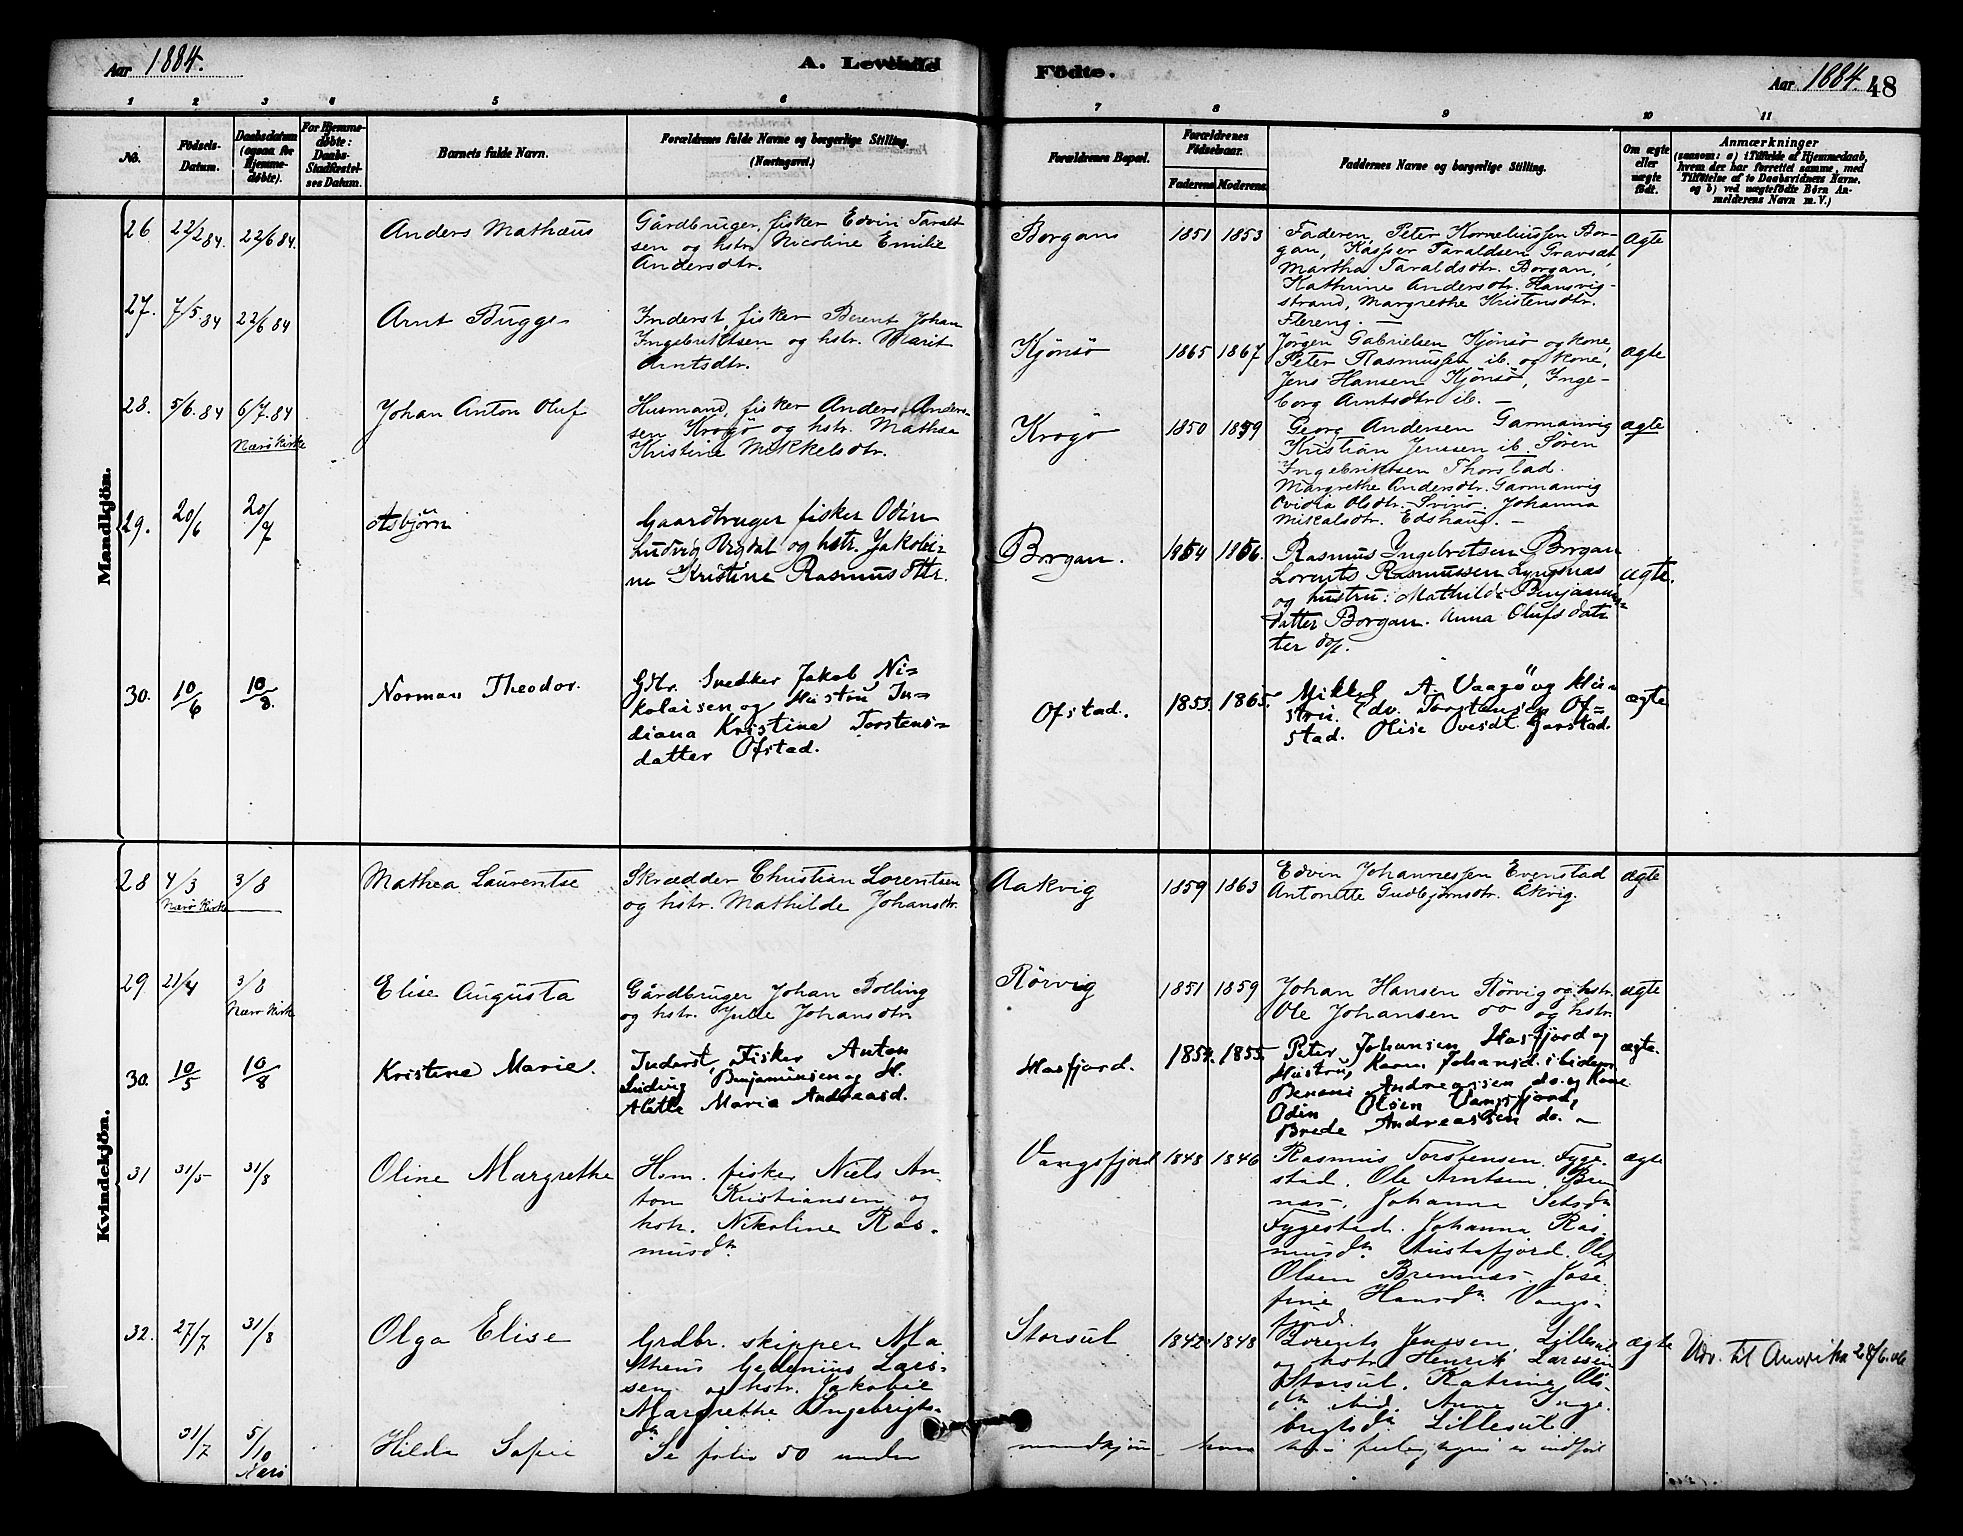 Aar 1884.
A. Levende
Födte.
Aar 1884.
48
1 2 3 4 5 6 7 8 9 10 11
No.
Födsels-Datum.
Daabsdatum (ogsaa for Hjemme-döbte).
For Hjemme-döbte: Daabs-Stadfæstel-ses Datum.
Barnets fulde Navn.
Forældrenes fulde Navne og borgerlige Stilling. (Næringsvei.)
Forældrenes Bopæl.
Forældrenes Födselsaar.
Faderens Moderens
Faddernes Navne og borgerlige Stilling.
Om ægte eller uægte födt.
Anmærkninger
(saasom: a) i Tilfælde af Hjemmedaab, hvem der har forrettet samme, med Tilföielse af to Daabsvidners Navne. og b) ved uægtefödte Börn An-melderens Navn m. V.)
Mandkjön.
26 22/2 84. 22/6 84. Anders Mathæus
Gårdbruger, fisker Edvin Tarald-
sen og hstr. Nicoline Emilie
Andersdtr.
Borgan 1851 1853
Faderen, Peter Korneliussen Bor-
gan, Kasper Taraldsen Gravsæt,
Martha Taraldsdtr. Borgan,
Kathrine Andersdtr. Hansvig-
strand, Margrethe Kristensdtr.
Flereng. —
Ægte
27. 7/5 84 22/6 84 Arnt Bugge
Inderst, fisker Berent Johan
Ingebriktsen og hstr. Marit
Arntsdtr.
Kjönsö 1865 1867
Jörgen Gabrielsen Kjönsö og kone,
Peter Rasmussen ib. og kone,
Jens Hansen Kjönsö, Inge-
borg Arntsdtr ib. —
Ægte
28. 5/6. 84 6/7. 84 Johan Anton Oluf
Nærö Kirke
Husmand, fisker Anders Anders-
sen Krogö og hstr. Mathea
Kristine Mikkelsdtr.
Krogö 1850 1859
Georg Andersen Garmanvig
Kristian Jenssen ib. Sören
Ingebriktsen Thorstad.
Margrethe Andersdtr. Garmanvig
Ovidia Olsdtr. Svinö, Johanna
Mikalsdtr. Edshaug. —
ægte
29. 20/6 20/7 Asbjörn
Gaardbruger fisker Odin
Ludvig Vigdal og hstr. Jakobi-
ne Kristine Rasmusdttr.
Borgan. 1854 1856.
Rasmus Ingebretsen Borgan
Lorents Rasmussen Lyngsnæs
og hustru: Mathilde Benjamins-
datter Borgan. Anna Olufsdat-
ter do/.
ægte.
30. 10/6 10/8. Norman Theodor.
Gdbr. Snedker Jakob Ni-
kolaisen og Hustru In-
diana Kristine Torstens-
datter Ofstad.
Ofstad. 1853. 1865.
Mikkel A. Vaagö og Hu-
stru. Edv. Torstensen Of-
stad. Olise Ovesdt. Garstad.
ægte
Kvindekjön.
28 4/3 3/8 Mathea Laurentse
Nærö Kirke
Skrædder Christian Lorentsen
og hstr. Mathilde Johansdtr.
Aakvig 1859 1863
Edvin Johannessen Evenstad
Antonette Gudbjörnsdtr. Åkvig.
ægte
29 21/4 3/8 Elise Augusta
Nærö Kirke
Gårdbruger Johan Bolling
og hstr. Julie Johansdtr
Rörvig 1851 1859
Johan Hansen Rörvig og hstr.
Ole Johansen do og hstr
ægte
30. 10/5 10/8 Kristine Marie.
Inderst, Fisker Anton
Luding Benjaminsen og H.
Aletle Maria Andreasd.
Hasfjord. 1854. 1855.
Peter Johansen Hasfjord og
Hustru, Karen Johansd.
Benoni Andreassen do. og Kone
Odin Olsen Vangsfjord,
Brede Andreassen do. —
ægte.
31 31/5 31/8 Oline Margrethe
Hsm. fisker Niels An-
ton Kristiansen og
hstr. Nikoline Ras-
musdtr
Vangsfjord 1848 1846
Rasmus Torstensen Fyge-
stad. Ole Arntsen, Brem-
næs, Johanna
Fygestad. Johanna Ras-
musdtr Austafjord. Ole
Olsen Bremnæs. Jose-
fine Hansdtr Vangs-
fjord.
ægte
32. 27/7 31/8 Olga Elise
Grdbr. skipper Ma-
thæus Gedenius Lars-
sen og hstr. Jakobie
Margrethe Ingebrigts-
dtr
Storsul 1842. 1848
Lorents Jenssen, Lillesul
og hstr Henrik Larssen
Storsul. Katrine Ols-
dtr ibid. Anne Inge-
brigtsdtr Lillesul
ægte
Udv. til Amerika 28/6. 06
31/7 5/10 Hilda Sofie
Nærö
Se folio 50 under
mandkjön hvor
hun feilagtigen er indfört